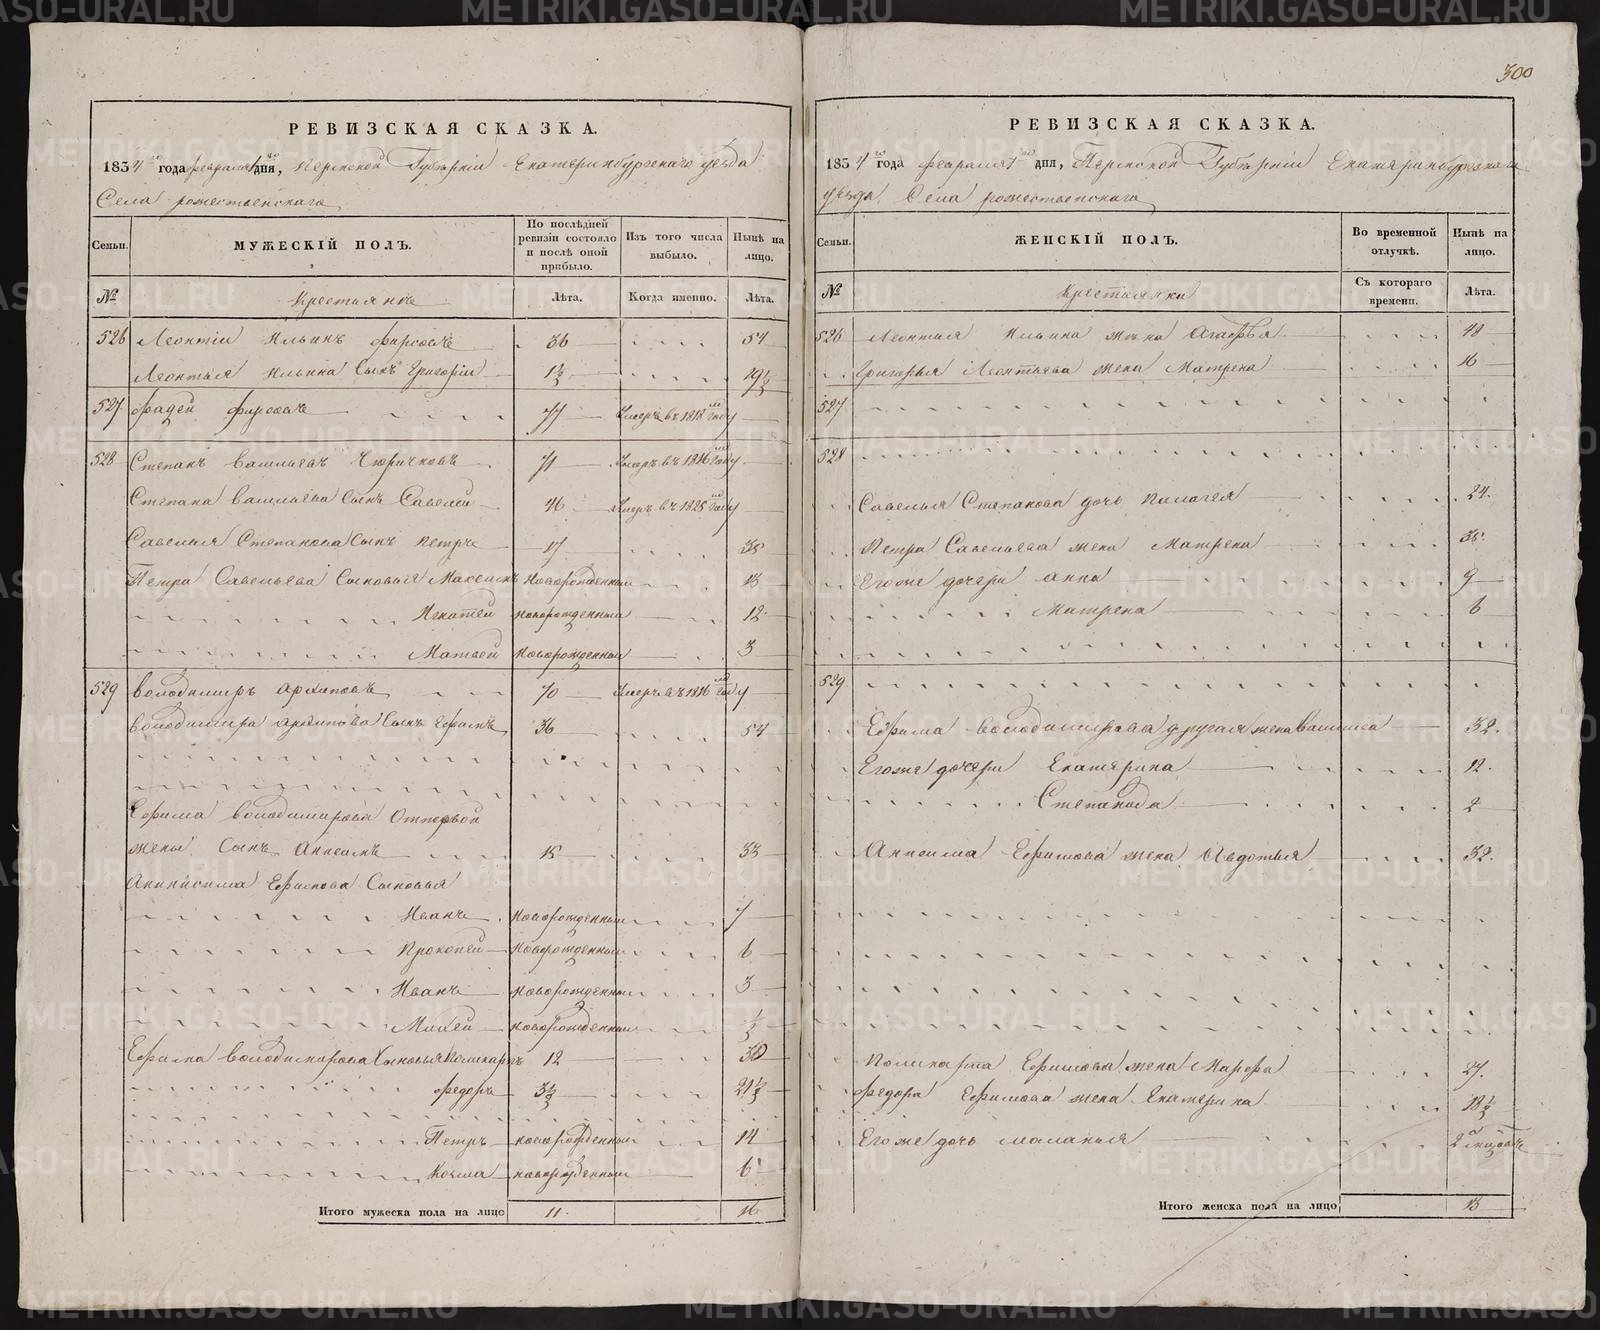 300
РЕВИЗСКАЯ СКАЗКА.
1834 го года февраля 1 дня, Пермской Губерніи Екатеринбургскаго уезда
Села рожественскаго
Семьи. МУЖЕСКІЙ ПОЛЪ. По послѣдней ревизіи состояло и послѣ оной прибыло. Изъ того числа выбыло. Нынѣ на лицо.
№ Крестьяне Лѣта. Когда именно. Лѣта.
526 Леонтіи Ильинъ фирсовъ 36 54
Леонтья Ильина Сынъ Григоріи 1½ 19½
527 фадеи фирсовъ 77 Умеръ въ 1818 году
528 Степанъ Васильевъ 71 Умеръ въ 1816 году
Степана Васильева Сынъ Савелеи 46 Умеръ въ 1828 году
Савелья Степанова Сынъ Петръ 17 35
Петра Савельева Сыновья Максимъ новорожденныи 13
Игнатеи новорожденныи 12
Матвеи новорожденныи 3
529 Володимиръ Архиповъ 70 Умеръ въ 1816 году
Володимира Архипова Сынъ Ефимъ 36 54
Ефима Володимирова Отпервой
жены Сынъ Анисимъ 15 33
Ефимова Сыновья
Иванъ новорожденныи 7
Прокопеи новорожденныи 6
Иванъ новорожденныи 3
новорожденныи ½
Ефима Володимирова Сыновья Поликарпъ 12 30
Федоръ 3½ 21½
Петръ новорожденныи 14
Козма новорожденныи 6
Итого мужеска пола на лицо 11. 16
РЕВИЗСКАЯ СКАЗКА.
1834 го года февраля 1 дня, Пермской Губерніи Екатеринбургскаго
уезда Села рожественскаго
Семьи. ЖЕНСКІЙ ПОЛЪ. Во временной отлучкѣ. Нынѣ на лицо.
№ Крестьянки Съ котораго времени. Лѣта.
526 Леонтья Ильина жена Агафья 48
Григорья Леонтьева жена Матрена 16
527
528
Савелья Степанова дочь Палагея 24.
Петра Савельева жена Матрена 35
Егоже дочери Анна 9
Матрена 6
529
Ефима Володимирова другая жена Василиса 32.
Егоже дочери Екатерина 12.
Степанида 2
Анисима Ефимова жена Авдотья 32.
Поликарпа Ефимова жена Марфа 27.
Федора Ефимова жена Екатерина 18½
Егоже дочь маланья 2
Итого женска пола на лицо 13
METRIKI.GASO-URAL.RU